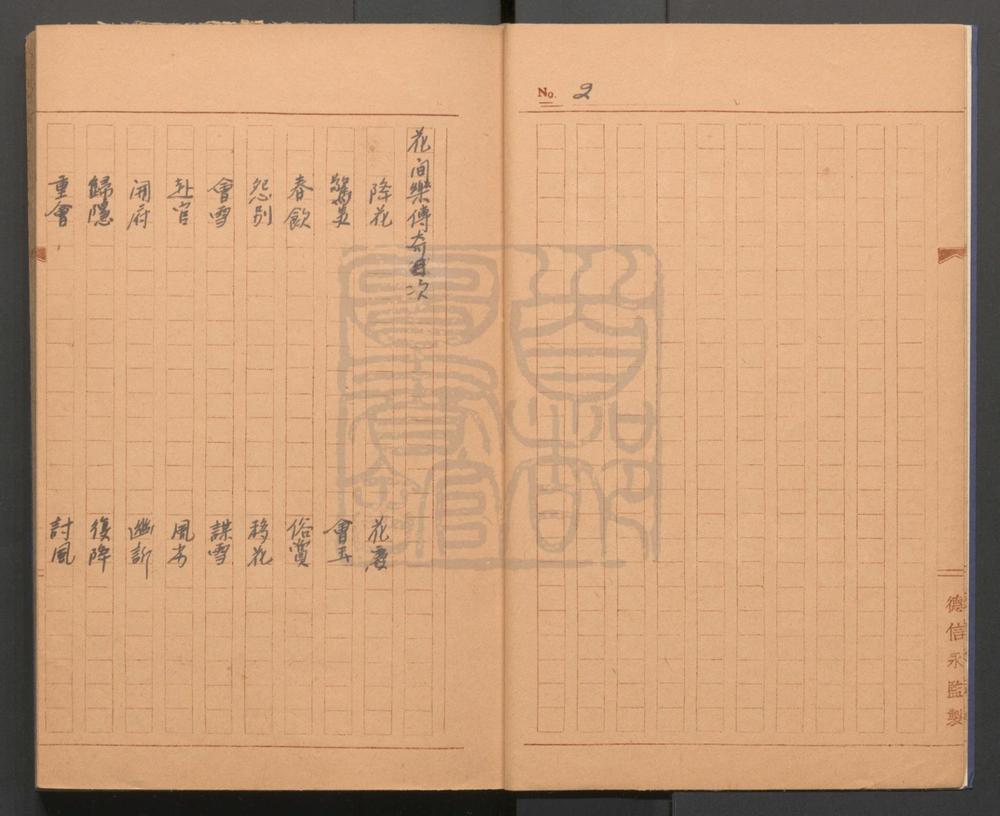 No. 2
德信永監製
花間樂傳奇目次
降花 花慶
驚美 會玉
春飲 俗賞
怨别 移花
會雪 謀雪
赴官 風書
開府 幽訴
歸隱 復降
重會 討風